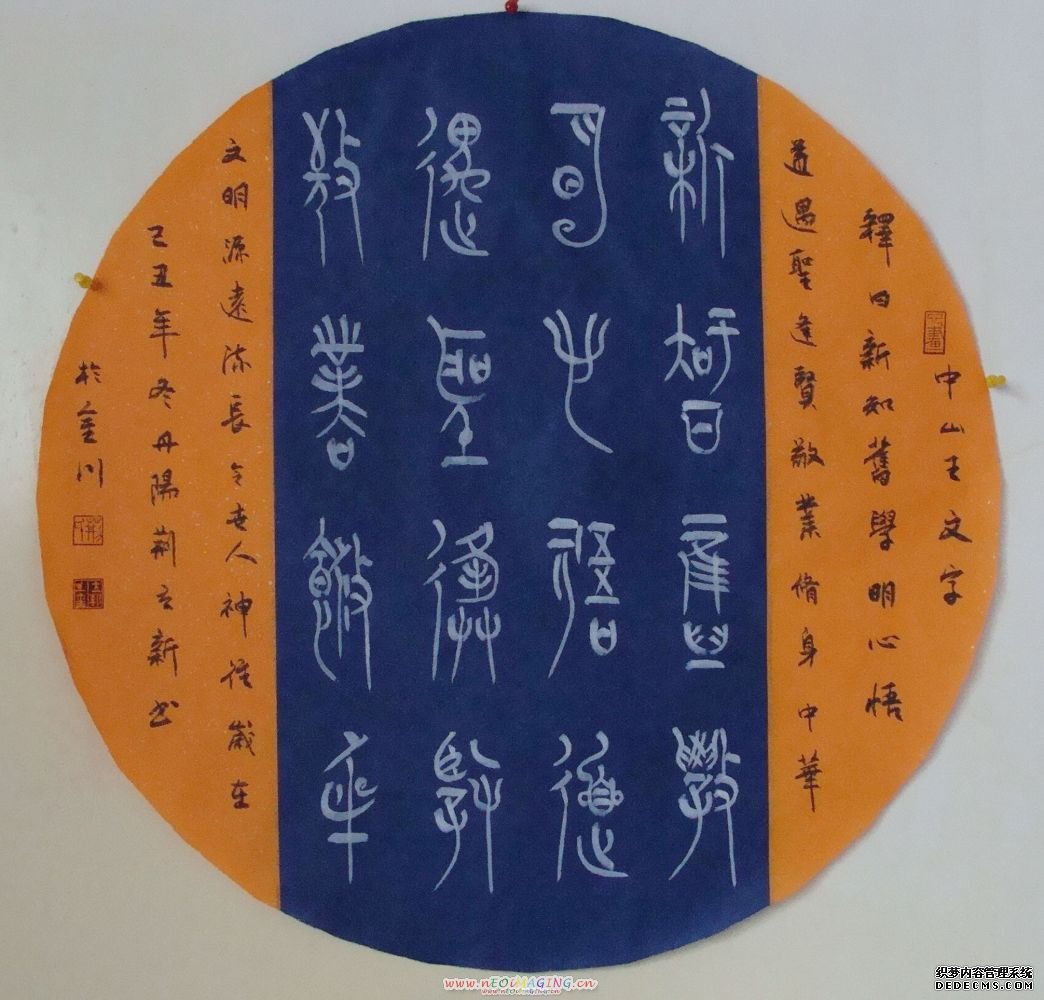 中山王文字
釋曰新知舊學明心悟
道遇聖逢賢敬業脩身中華
新知舊學
明心悟道
遇聖逢賢
敬業脩身
文明源遠流長令世人神往歲在
己丑年冬丹陽荊立新书
於金川
www.nEOiMAGiNG.cn
www.nEOiMAGiNG.cn
织梦内容管理系统
DEDECMS.COM